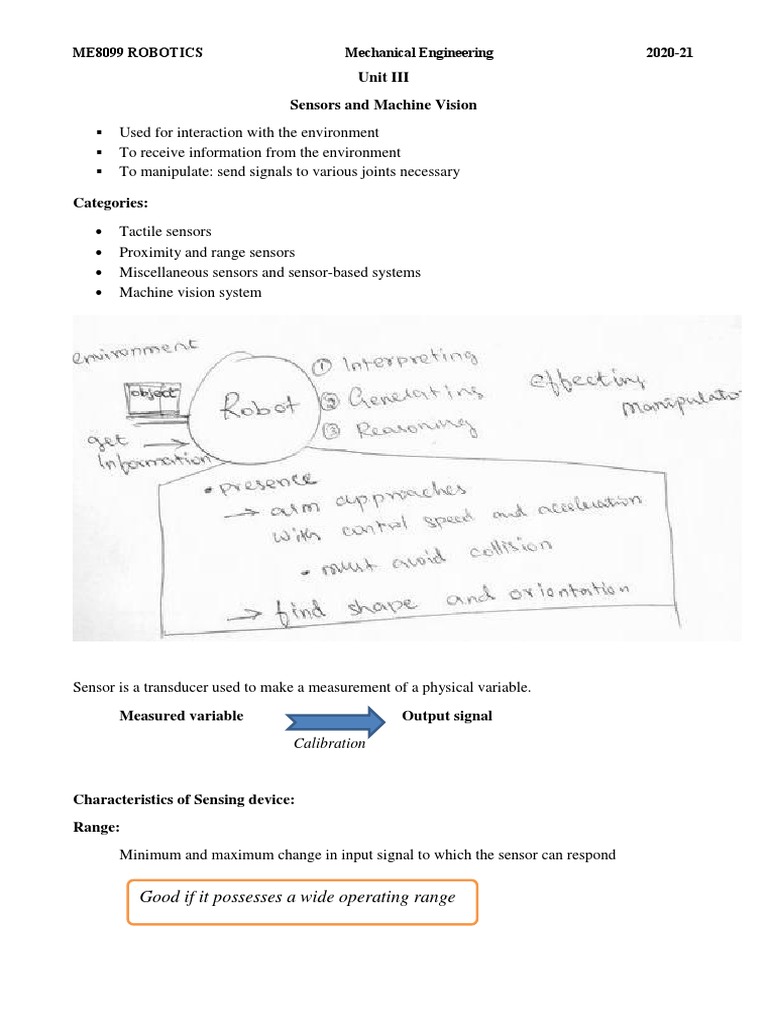 ME8099 ROBOTICS Mechanical Engineering 2020-21
Unit III
Sensors and Machine Vision
▪ Used for interaction with the environment
▪ To receive information from the environment
▪ To manipulate: send signals to various joints necessary
Categories:
• Tactile sensors
• Proximity and range sensors
• Miscellaneous sensors and sensor-based systems
• Machine vision system
environment
object
Robot
get
Information
① Interpreting
② Generating
③ Reasoning
effecting
manipulato
• presence
→ arm approaches
with control speed and acceleration
• must avoid collision
→ find shape and oriontation
Sensor is a transducer used to make a measurement of a physical variable.
Measured variable Output signal
Calibration
Characteristics of Sensing device:
Range:
Minimum and maximum change in input signal to which the sensor can respond
Good if it possesses a wide operating range